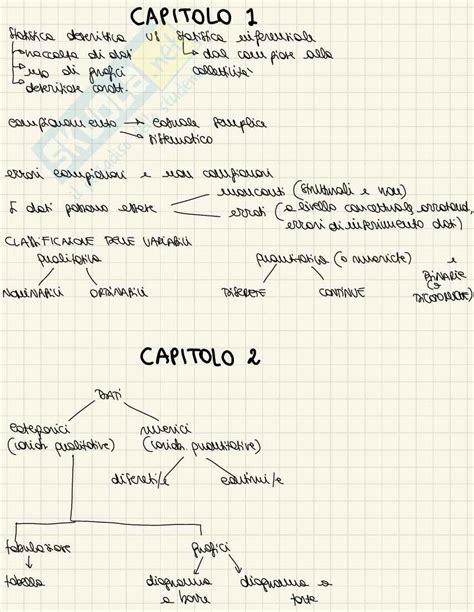 CAPITOLO 1
Statistica descrittiva VS Statistica inferenziale
raccolta di dati dal campione alla
uso di grafici collettività
descrivere caratt.
campionamento casuale semplice
sistematico
errori campionari e non campionari
I dati possono essere mancanti (strutturali e non)
errati (a livello concettuale, arrotond,
errori di inserimento dati)
CLASSIFICAZIONE DELLE VARIABILI
qualitativa quantitativa (o numeriche) e
NOMINABILI ORDINABILI DISCRETE CONTINUE BINARIE
(o DICOTOMICHE)
CAPITOLO 2
DATI
categorici numerici
(variab. qualitative) (variab. quantitative)
discreti/e continui/e
tabulazione grafici
tabella diagramma diagramma a
a barre torta
skuola.net